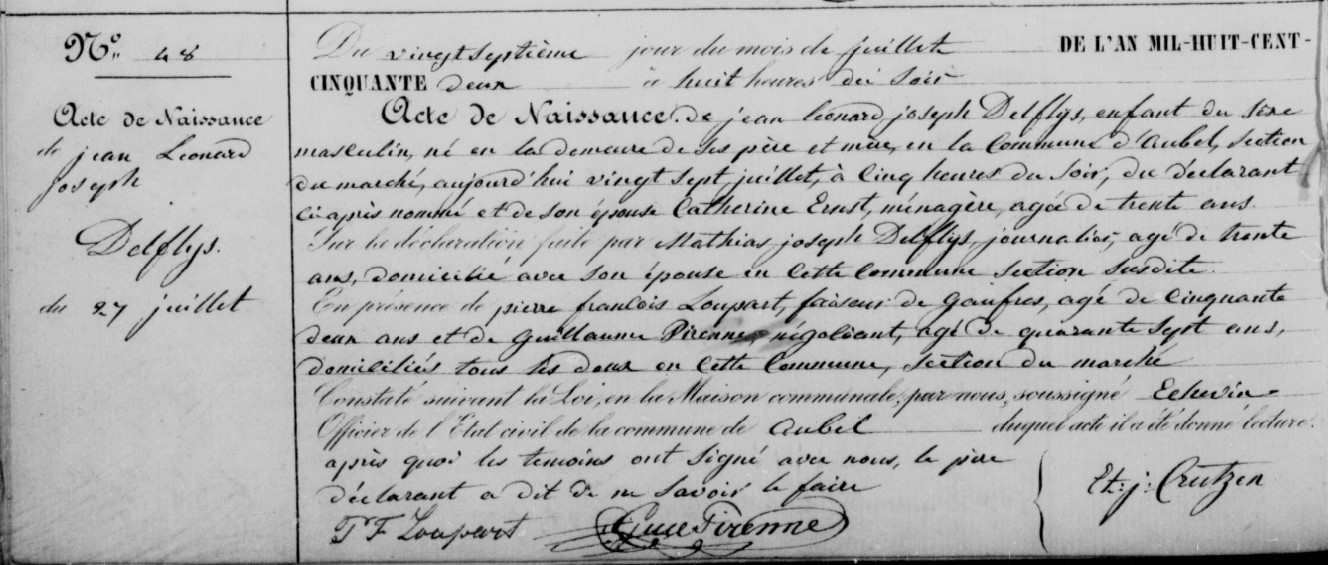 N° 48
Acte de Naissance
de jean Leonard
joseph
Delflys.
du 27 juillet
Du vingt septième jour du mois de juillet DE L'AN MIL-HUIT-CENT-
CINQUANTE deux à huit heures du soir
Acte de Naissance de jean leonard joseph Delflys, enfant du sexe
masculin, né en la demeure de ses père et mère, en la Commune d'aubel, section
du marché, aujourd'hui vingt sept juillet, à cinq heures du soir, du déclarant
ci après nommé et de son épouse Catherine Ernst, ménagère, agée de trente ans
Sur la déclaration faite par Mathias joseph Delflys, journalier, agé de trente
ans, domicilié avec son épouse en cette commune section susdite.
En présence de pierre francois Loupart, faiseur de gaufres, agé de cinquante
deux ans et de guillaume Pirenne, négociant, agé de quarante sept ans,
domiciliés tous les deux en cette Commune, section du marché
Constaté suivant la Loi, en la Maison communale, par nous, soussigné Echevin
Officier de l'Etat civil de la commune de aubel duquel acte il a été donné lecture.
après quoi les temoins ont signé avec nous, le père
déclarant a dit de ne savoir le faire
P F Loupart Guee Pirenne
Et: j: Crutzen